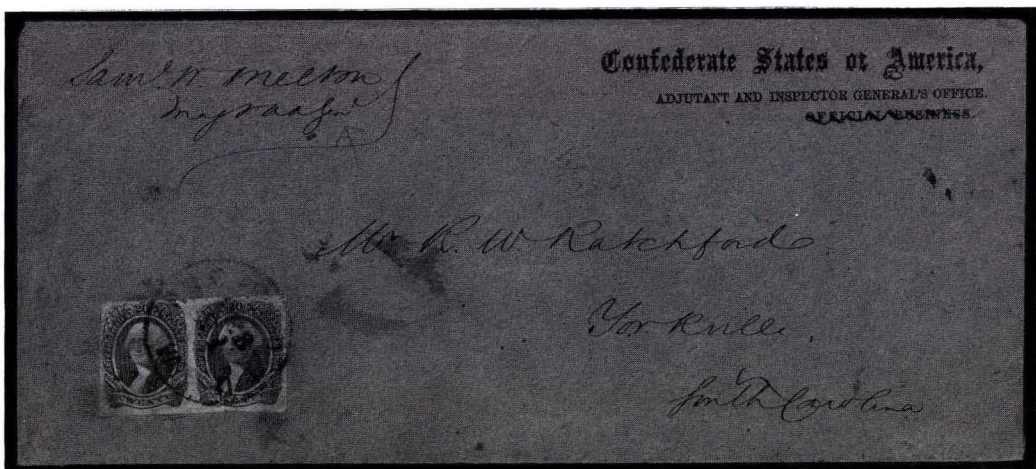 Sam'l W. Melton
Maj & AAGen'l
Confederate States of America,
ADJUTANT AND INSPECTOR GENERAL'S OFFICE.
OFFICIAL BUSINESS.
Mr. R. W. Ratchford
Yorkville,
South Carolina